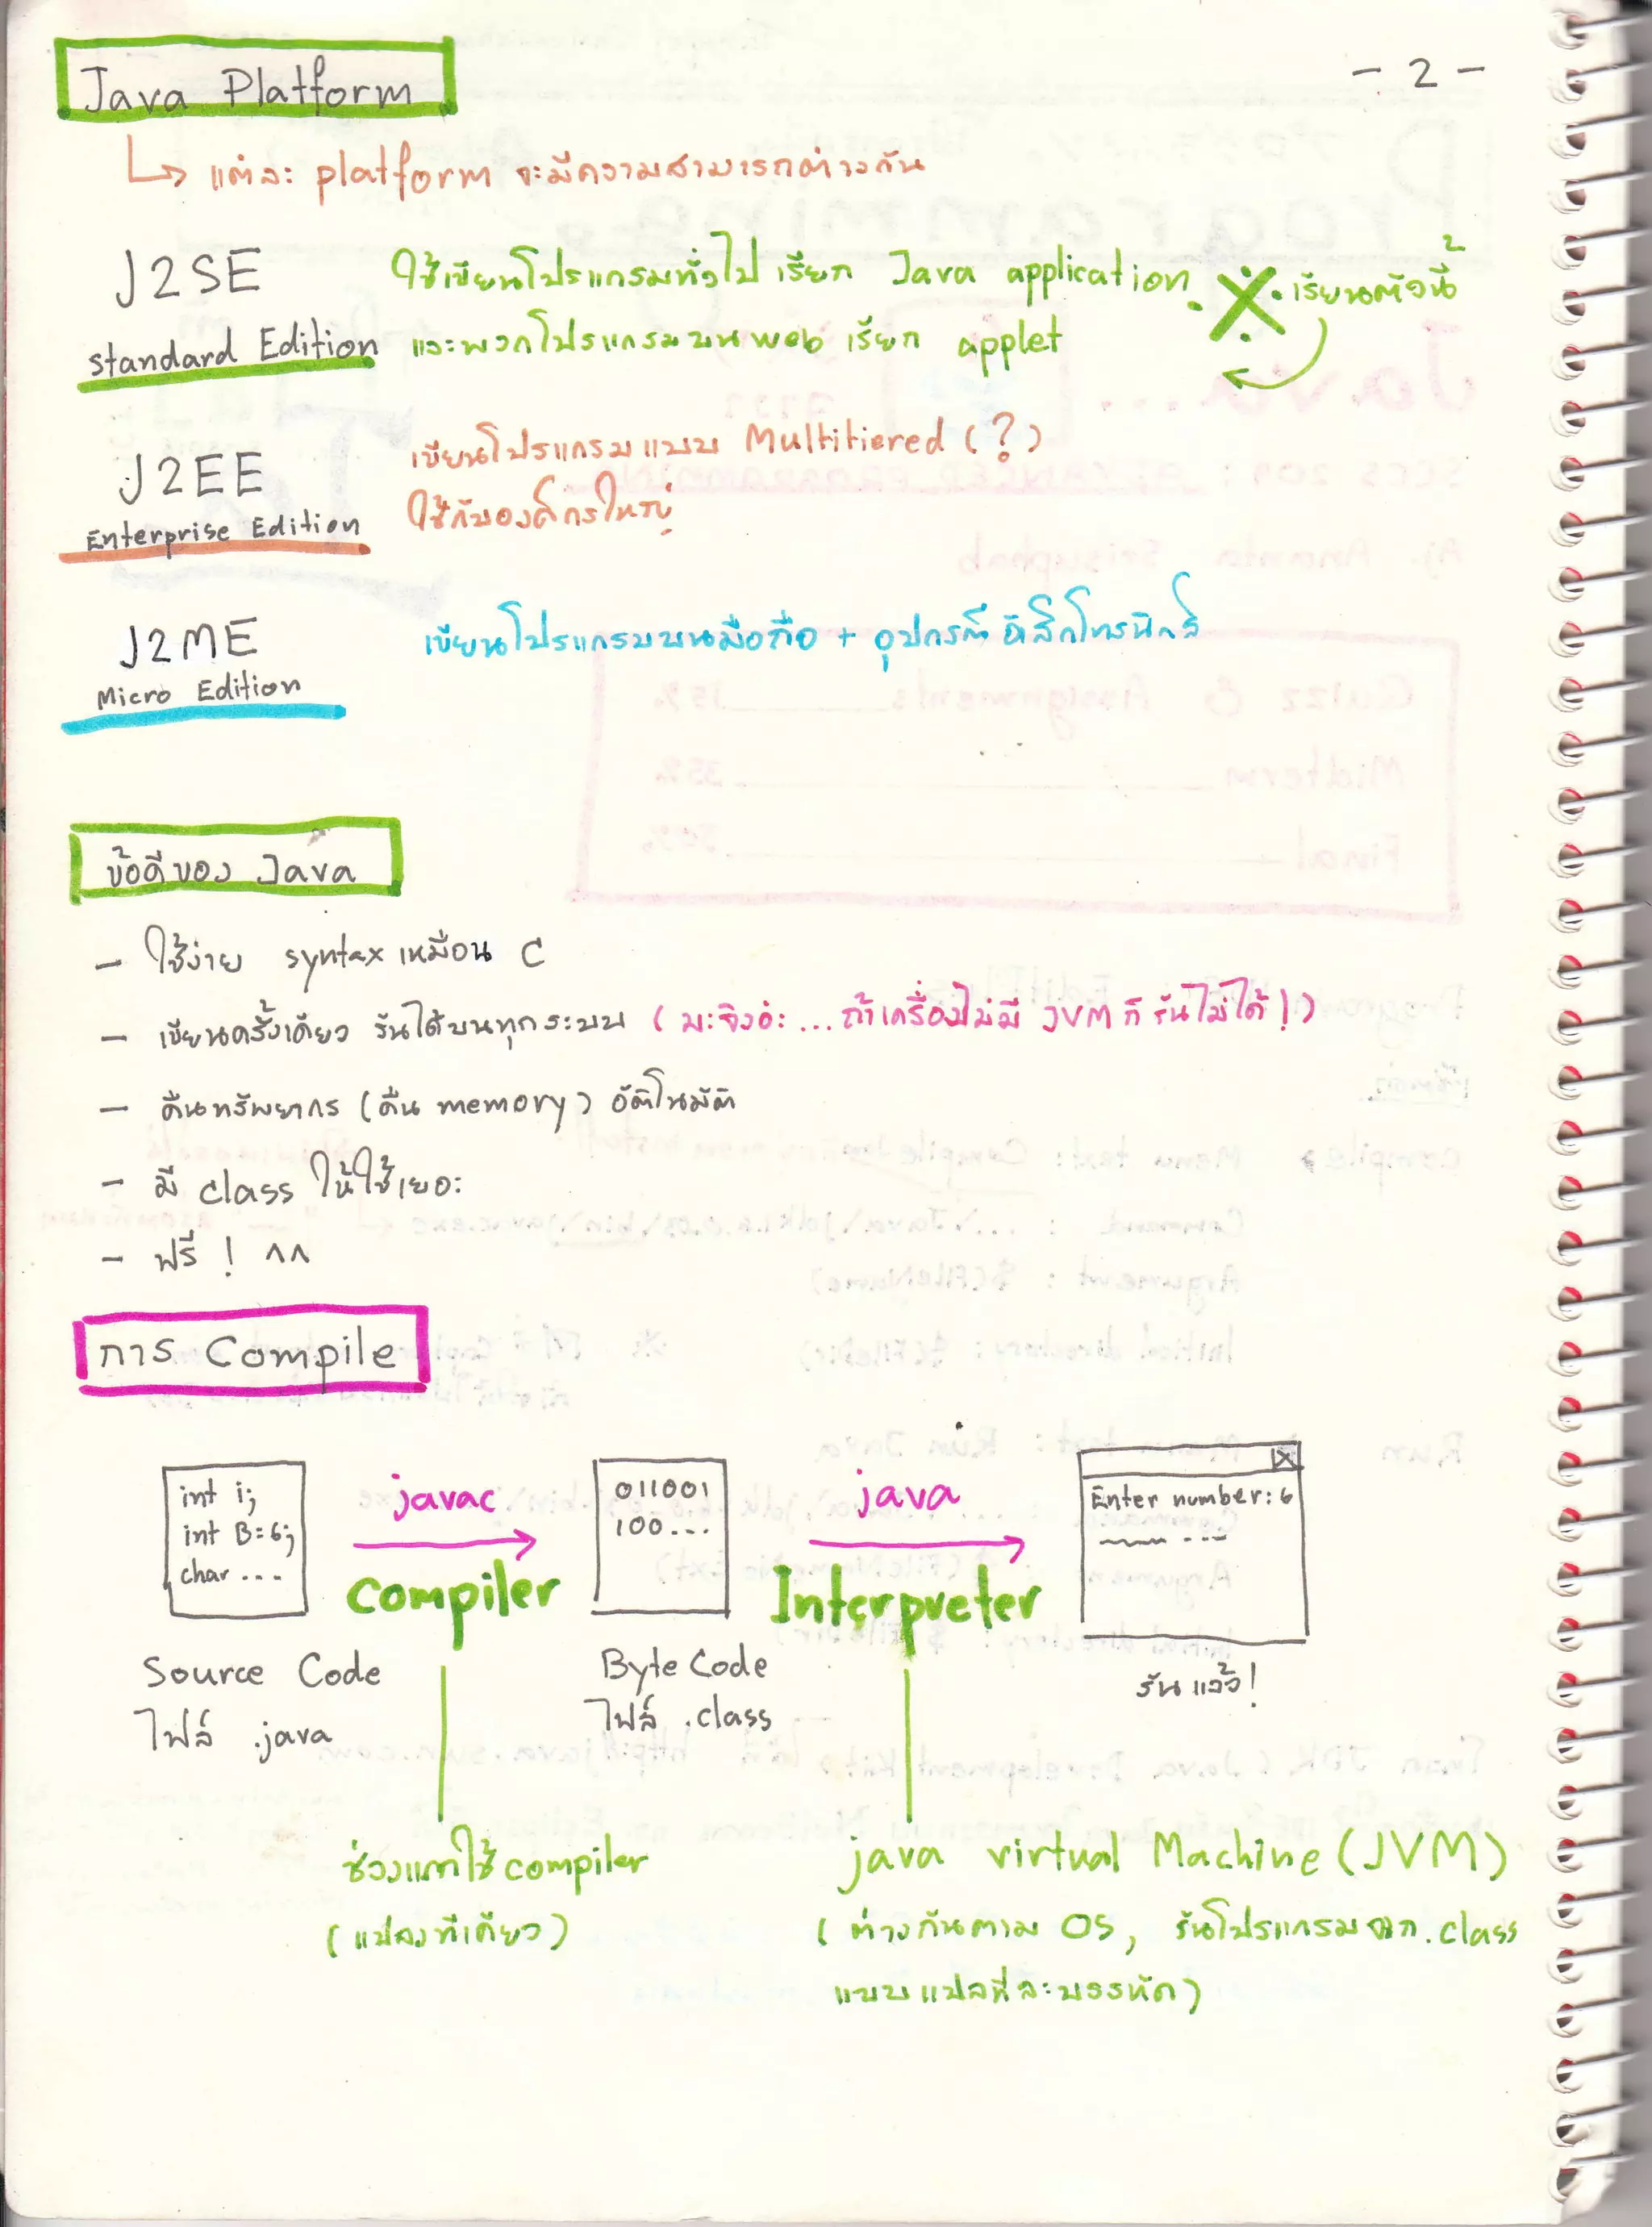 - 2 -
Java Platform
↳ แต่ละ platform จะมีความสามารถต่างกัน
J2SE
standard Edition
ใช้เขียนโปรแกรมทั่วไป เรียก Java application
และพวกโปรแกรมบน web เรียก applet
※ เรียนตัวนี้
J2EE
Enterprise Edition
เขียนโปรแกรมแบบ Multitiered (?)
ใช้กับองค์กรใหญ่
J2ME
Micro Edition
เขียนโปรแกรมบนมือถือ + อุปกรณ์อิเล็กโทรนิกส์
ข้อดีของ Java
- ใช้ง่าย syntax เหมือน C
- เขียนครั้งเดียว รันได้บนทุกระบบ (มะจิงอ่ะ...ถ้าเครื่องไม่มี JVM ก็รันไม่ได้!)
- คืนทรัพยากร (คืน memory) อัตโนมัติ
- มี class ให้ใช้เยอะ
- ฟรี ! ^^
การ Compile
int i;
int B=6;
char ...
javac
Compiler
011001
100...
java
Interpreter
Enter number: 6
Source Code
ไฟล์ .java
Byte Code
ไฟล์ .class
รันแล้ว!
ช่วงแรกใช้ compiler
(แปลงทีเดียว)
java virtual Machine (JVM)
(ต่างกันตาม OS, รันโปรแกรมจาก .class
แบบแปลทีละบรรทัด)